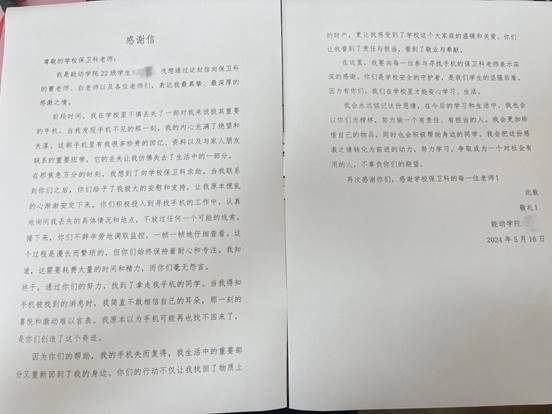 感谢信
尊敬的学校保卫科老师：
我是能动学院22级学生刘 我想通过这封信向保卫科
的曹老师、白老师以及各位老师们，表达我最真挚、最深厚的
感激之情。
前段时间，我在学校里不慎丢失了一部对我来说极其重要
的手机。当我发现手机不见的那一刻，我的内心充满了绝望和
失落，这部手机里有我很多珍贵的回忆、资料以及与家人朋友
联系的重要纽带，它的丢失让我仿佛失去了生活中的一部分。
在那焦急万分的时刻，我想到了向学校保卫科求助。当我联系
到你们之后，你们给予了我极大的安慰和支持，让我原本慌乱
的心渐渐安定下来。你们积极投入到寻找手机的工作中，认真
地询问我丢失的具体情况和地点，不放过任何一个可能的线索。
接下来，你们不辞辛劳地调取监控，一帧一帧地仔细查看。这
个过程是漫长而繁琐的，但你们始终保持着耐心和专注。我知
道，这需要耗费大量的时间和精力，而你们毫无怨言。
终于，通过你们的努力，找到了拿走我手机的同学。当我得知
手机被找到的消息时，我简直不敢相信自己的耳朵，那一刻的
喜悦和激动难以言表。我原本以为手机可能再也找不回来了，
是你们创造了这个奇迹。
因为你们的帮助，我的手机失而复得，我生活中的重要部
分又重新回到了我的身边。你们的行动不仅让我找回了物质上
的财产，更让我感受到了学校这个大家庭的温暖和关爱。你们
让我看到了责任与担当，看到了敬业与奉献。
在这里，我要向每一位参与寻找手机的保卫科老师表示深
深的感谢。你们是学校安全的守护者，是我们学生的坚强后盾。
因为有你们，我们在学校里才能安心学习、生活。
我会永远铭记这份恩情，在今后的学习和生活中，我也会
以你们为榜样，努力做一个有责任、有担当的人。我会更加珍
惜自己的物品，同时也会积极帮助身边的同学。我会把这份感
激之情转化为前进的动力，努力学习，争取成为一个对社会有
用的人，不辜负你们的期望。
再次感谢你们，感谢学校保卫科的每一位老师！
此致
敬礼！
能动学院
2024年5月16日